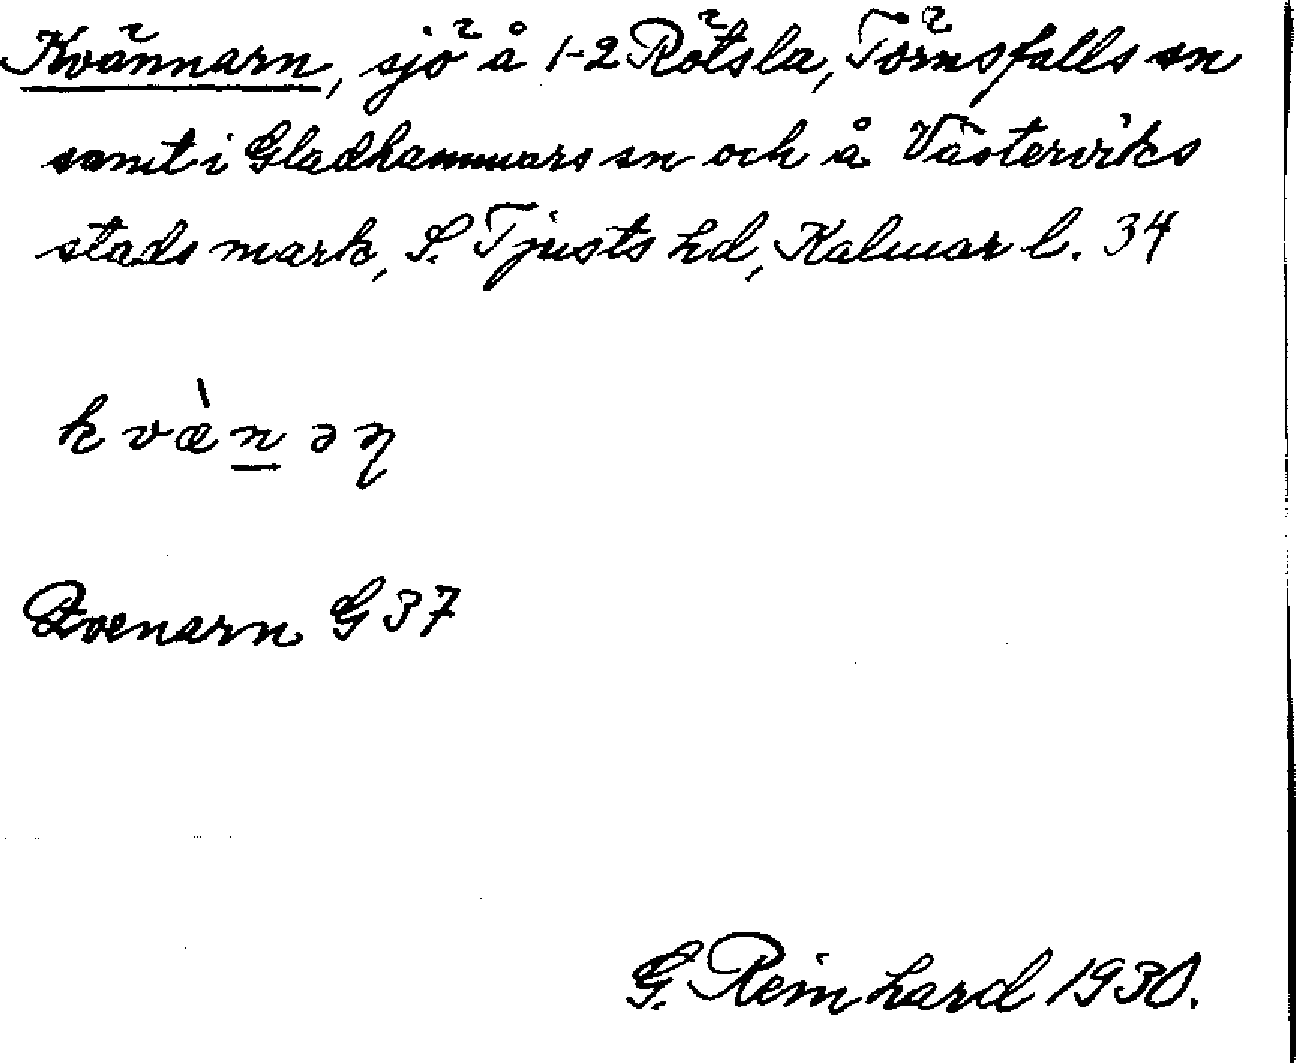 Kvännarn, sjö å 1-2 Rötsla, Törnsfalls sn
samt i Gladhammars sn och å Västerviks
stads mark, S. Tjusts hd, Kalmar l. 34
kvæ̀n̲əɳ
Qvenarn G 37
G. Reinhard 1930.